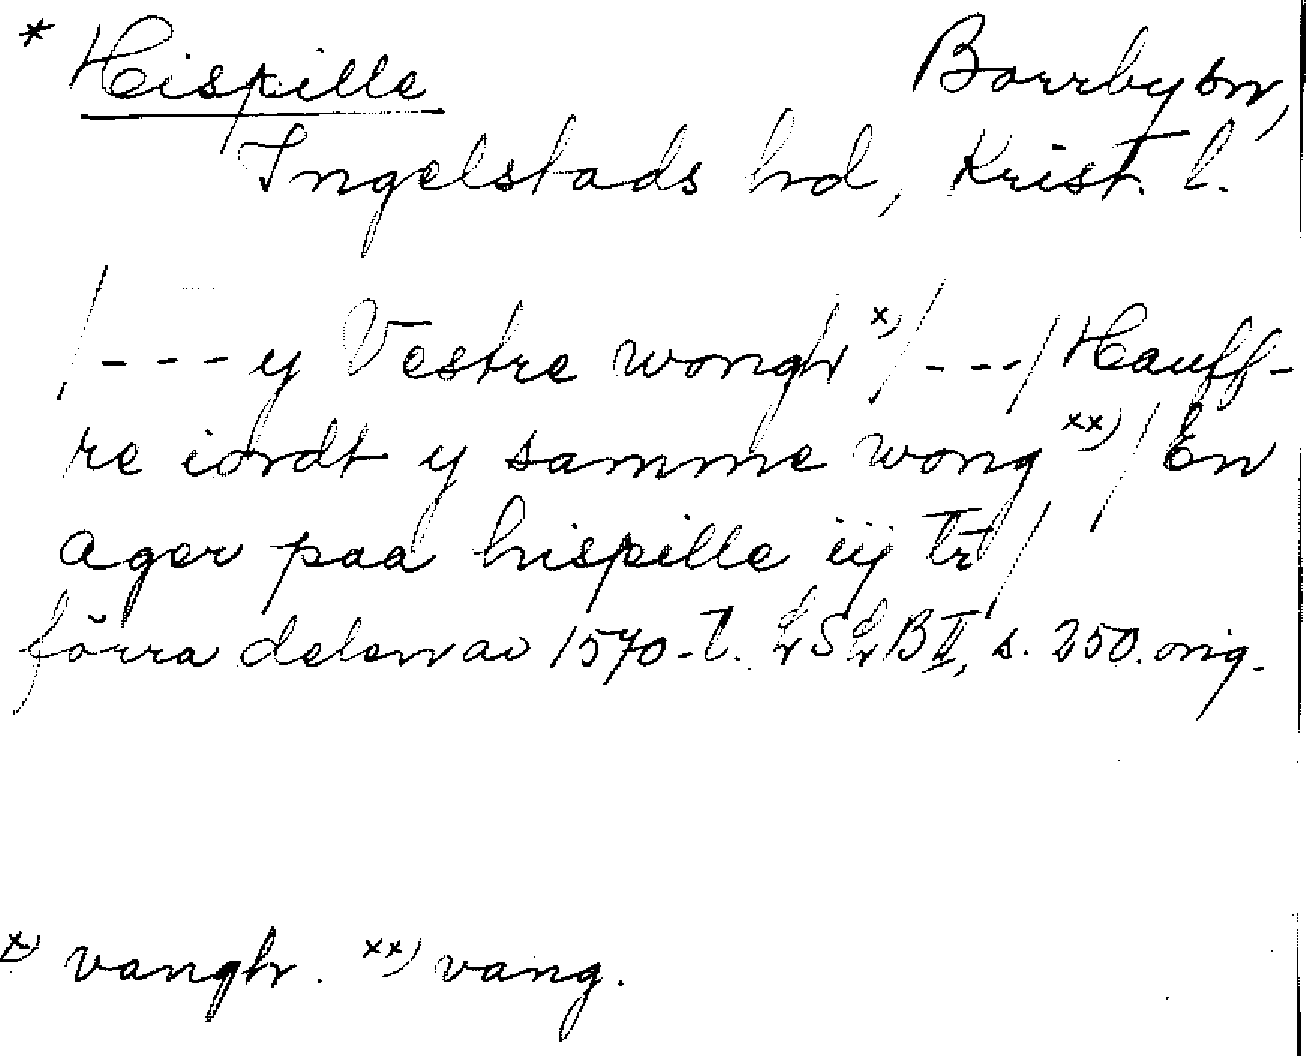 * Hispille Borrby sn,
Ingelstads hd, Krist. l.
/---y Vestre wongh x)/---/Hauff-
re iordt y samme wong xx)/En
ager paa hispille iij tr/
förra delen av 1570-t. LSLB II, s. 250. orig.
x) vangh. xx) vang.